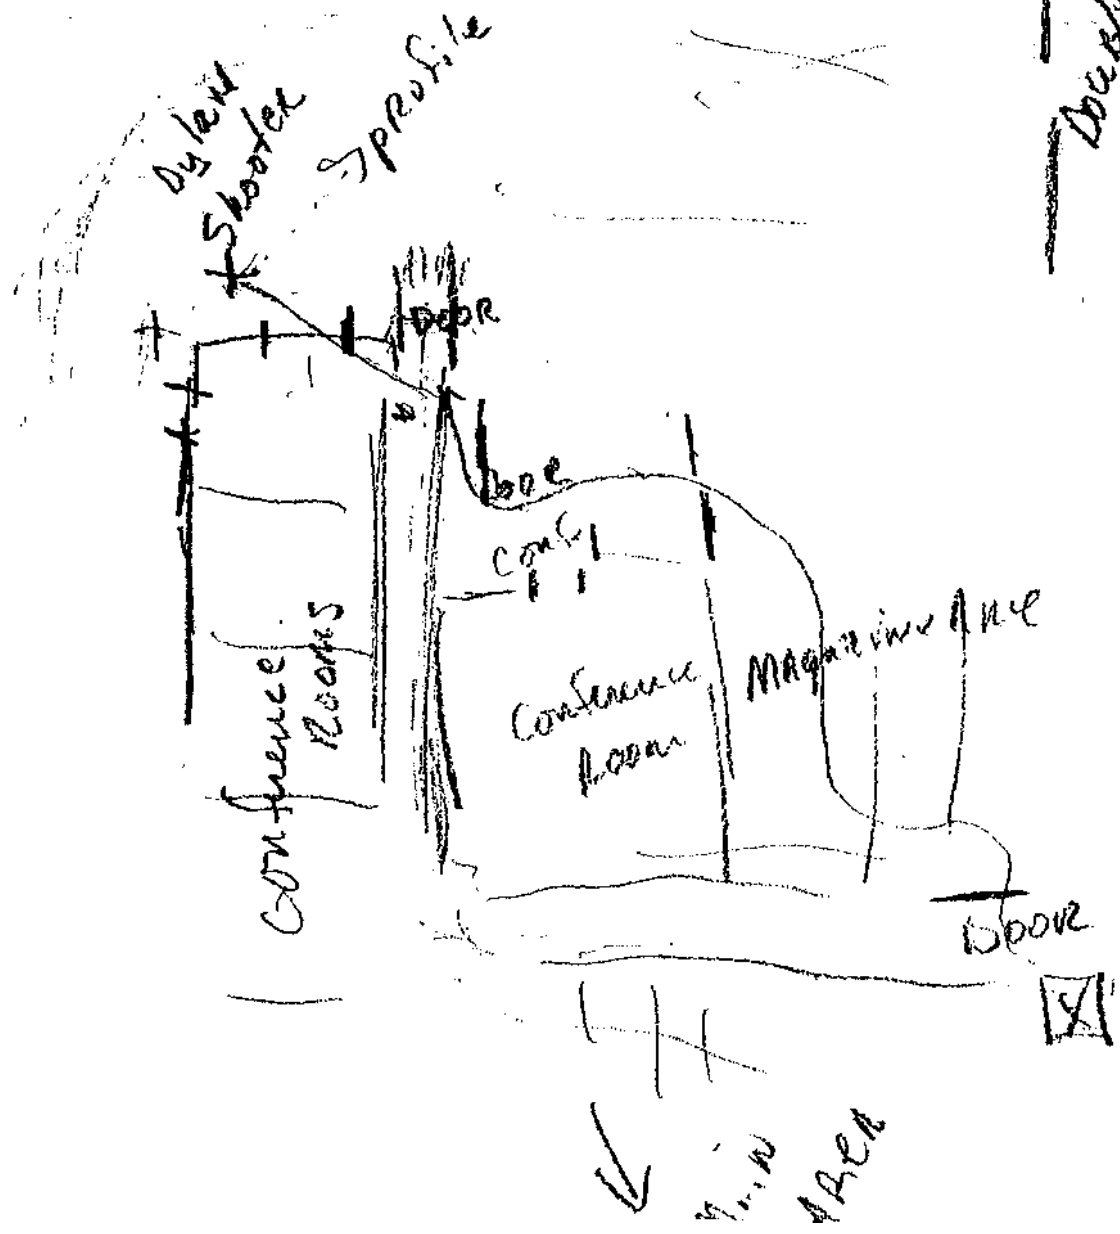 Dylan
Shooter
→ profile
DOOR
Conf
Conference
Rooms
Conference
Room
Magazine Area
DOOR
X
Main
Area